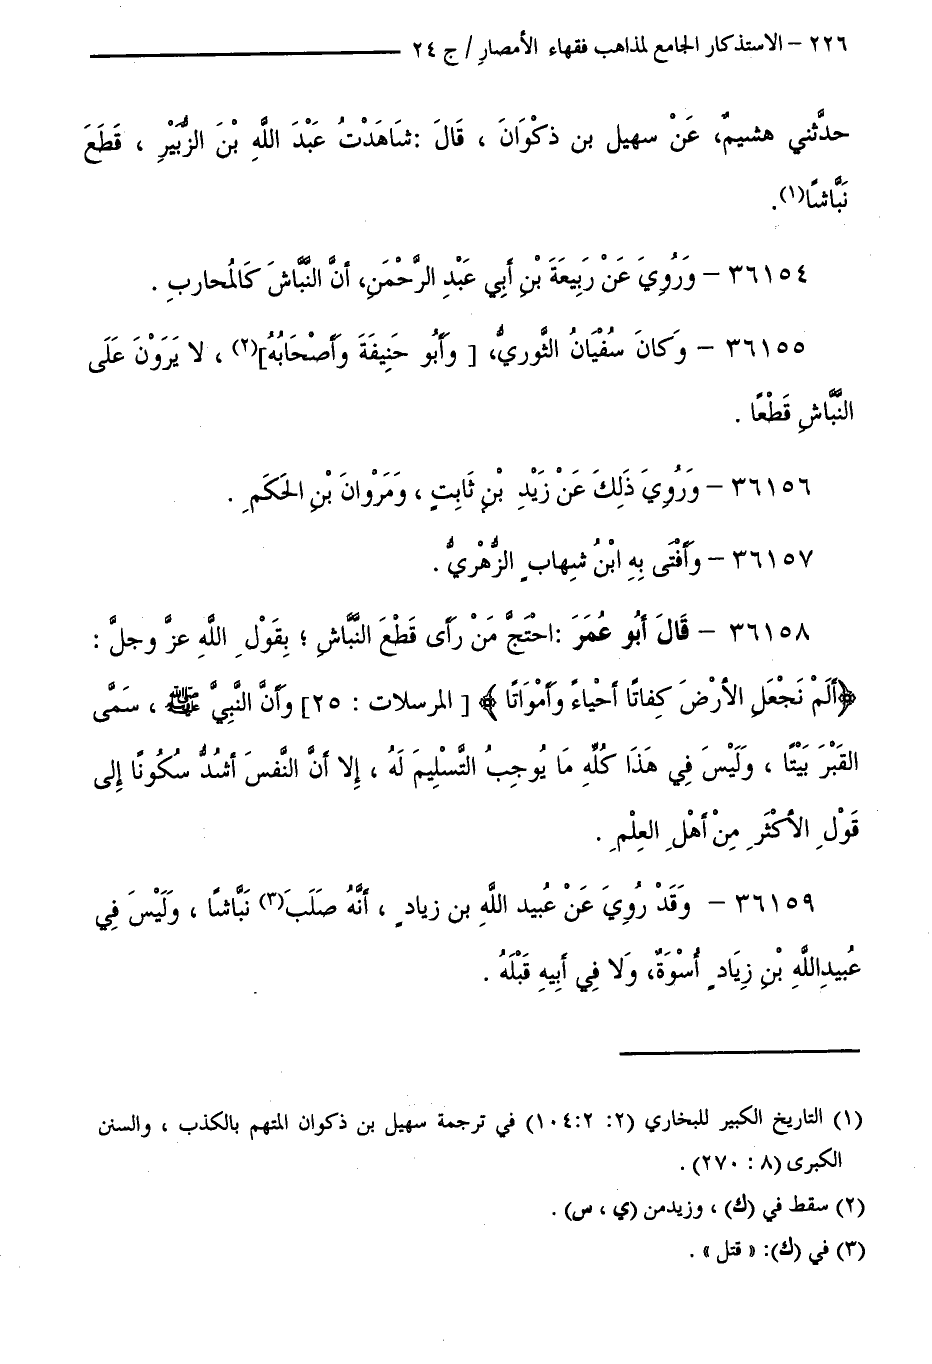 ٢٢٦ – الاستذكار الجامع لمذاهب فقهاء الأمصارِ / ج ٢٤
حدَّثني هشيمٌ، عَنْ سهيل بن ذكْوَانَ ، قَالَ :شَاهَدْتُ عَبْدَ اللَّهِ بْنَ الزُّبَيْرِ ، قَطَعَ
نَبَّاشًا(١).
٣٦١٥٤ – وَرُوِيَ عَنْ رَبِيعَةَ بْنِ أبِي عَبْدِ الرَّحْمَنِ، أنَّ النَّبَّاشَ كَالمُحاربِ .
٣٦١٥٥ – وَكانَ سُفْيَانُ الثَّوريُّ، [ وأبُو حَنِيفَةَ وَأصْحَابُهُ](٢) ، لا يَرَوْنَ عَلَى
النَّبَّاشِ قَطْعًا .
٣٦١٥٦ – وَرُوِيَ ذَلِكَ عَنْ زَيْدِ بْنِ ثَابِتٍ ، ومَرْوانَ بْنِ الحَكَمِ .
٣٦١٥٧ – وَأفْتَى بِهِ ابْنُ شِهابٍ الزُّهْرِيُّ .
٣٦١٥٨ – قَالَ أبُو عُمَرَ :احْتَجَّ مَنْ رَأى قَطْعَ النَّبَّاشِ ؛ بِقَوْلِ اللَّهِ عزَّ وجلَّ :
﴿ألَمْ نَجْعَلِ الأرْضَ كِفاتًا أحْياءً وَأمْوَاتًا ﴾ [ المرسلات : ٢٥] وَأنَّ النَّبِيَّ ﷺ ، سَمَّى
القَبْرَ بَيْتًا ، وَلَيْسَ فِي هَذَا كُلِّهِ مَا يُوجِبُ التَّسْلِيمَ لَهُ ، إِلا أنَّ النَّفسَ أشدُّ سكُونًا إِلى
قَوْلِ الأكْثَرِ مِنْ أهْلِ العِلْمِ .
٣٦١٥٩ – وَقَدْ رُوِيَ عَنْ عُبيد اللَّهِ بن زيادٍ ، أنَّهُ صَلَبَ(٣) نَبَّاشًا ، وَلَيْسَ فِي
عُبيدِاللَّهِ بْنِ زِيَادٍ أُسْوَةٌ، وَلا فِي أبِيهِ قَبْلَهُ .
(١) التاريخ الكبير للبخاري (٢: ١٠٤:٢) في ترجمة سهيل بن ذكوان المتهم بالكذب ، والسنن
الكبرى (٨ : ٢٧٠) .
(٢) سقط في (ك) ، وزيدمن (ي ، س) .
(٣) في (ك): « قتل » .